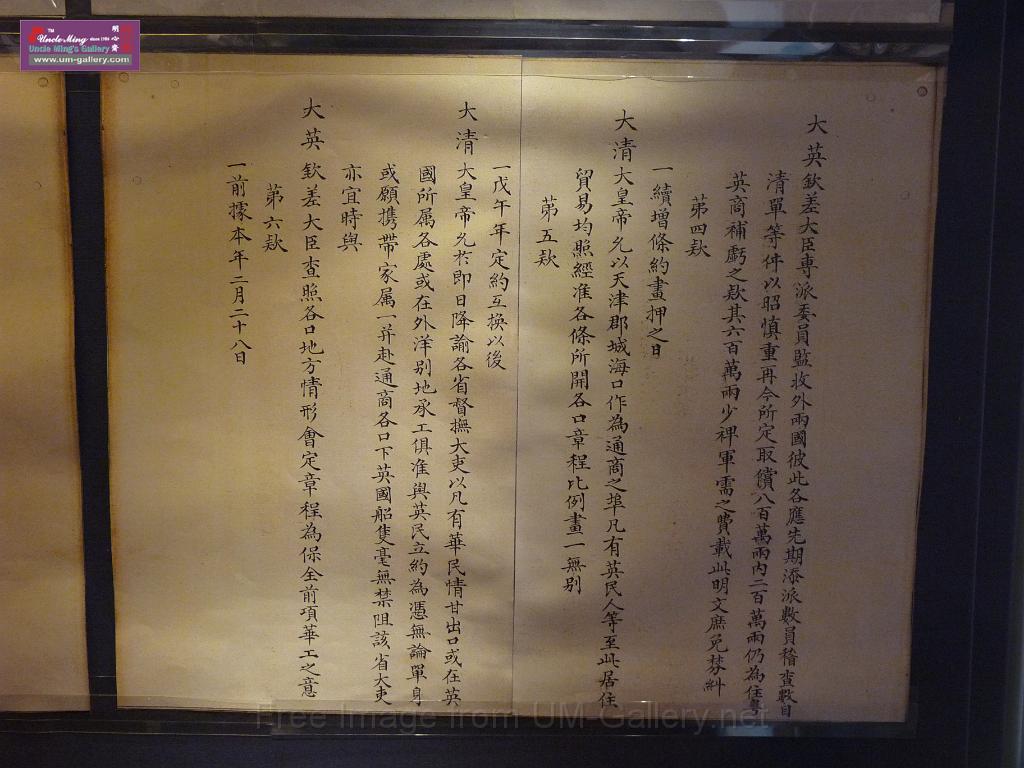 大英欽差大臣專派委員監收外兩國彼此各應先期添派數員稽查數目
清單等件以昭慎重再今所定取償八百萬兩內二百萬兩仍為住粵
英商補虧之款其六百萬兩少裨軍需之費載此明文庶免棼糾
第四款
一續增條約畫押之日
大清大皇帝允以天津郡城海口作為通商之埠凡有英民人等至此居住
貿易均照經准各條所開各口章程比例畫一無別
第五款
一戊午年定約互換以後
大清大皇帝允於即日降諭各省督撫大吏以凡有華民情甘出口或在英
國所屬各處或在外洋別地承工俱准與英民立約為憑無論單身
或願攜帶家屬一并赴通商各口下英國船隻毫無禁阻該省大吏
亦宜時與
大英欽差大臣查照各口地方情形會定章程為保全前項華工之意
第六款
一前據本年二月二十八日
Uncle Ming since 1986
TM
明心齋
Uncle Ming's Gallery
www.um-gallery.com
Free Image from UM-Gallery.net